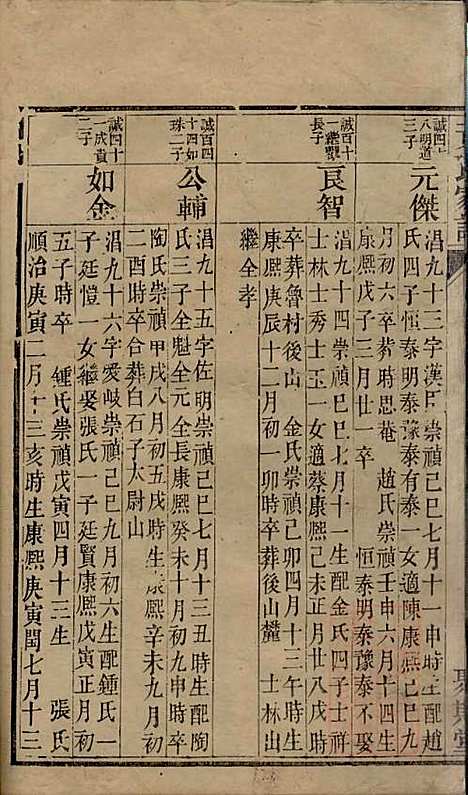 誠四十
八明道
三子
元傑
淐九十三字漢臣崇禎己巳七月十一申時生配趙
氏四子恒泰明泰豫泰有泰一女適陳康熙己巳九
月初六卒葬時思菴 趙氏崇禎壬申六月十四生
康熙戊子三月廿一卒 恒泰明泰豫泰不娶
誠百十
一繼觀
長子
良智
淐九十四崇禎己巳七月十一生配金氏四子士杜
士林士秀士玉一女適蔡康熙正月廿八戌時
卒葬魯村後山 金氏崇禎己卯四月十三午時生
康熙庚辰十二月初一卯時卒葬後山麓 士林出
繼全孝
誠百四
十四如
珠二子
公輔
淐九十五字佐明崇禎己巳七月十三丑時生配陶
氏三子全魁全元全長康熙癸未十月初九申時卒
陶氏崇禎甲戌八月初五戌時生康熙辛未九月初
二酉時卒合葬白石子太尉山
誠四十
一成貴
二子
如金
淐九十六字愛岐崇禎己巳九月初六生配鍾氏一
子廷愷一女繼娶張氏一子廷賢康熙戊寅正月初
五子時卒 鍾氏崇禎戊寅四月十三生 張氏
順治庚寅二月十三亥時生康熙庚寅閏七月十三
聚斯堂